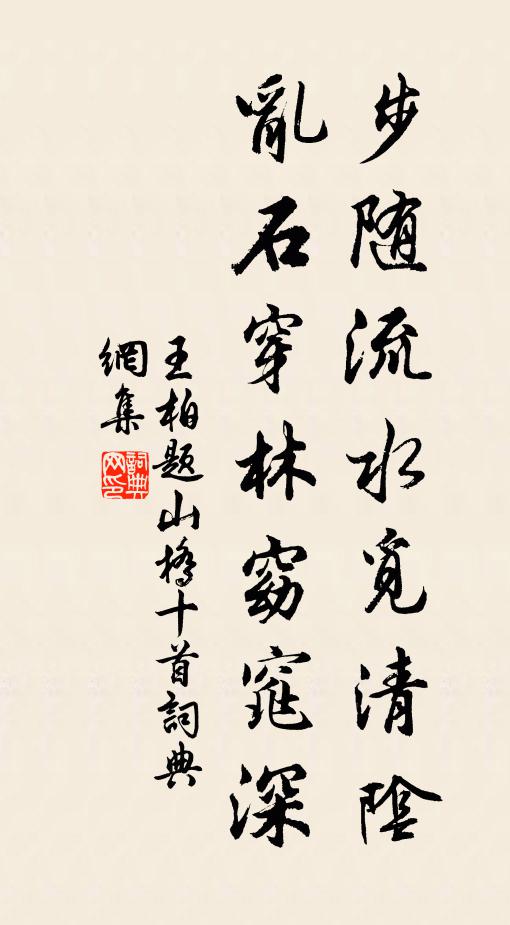 步随流水覓清陰
亂石穿林窈窕深
王柏題山橋十首詞典
網集
詞典网印